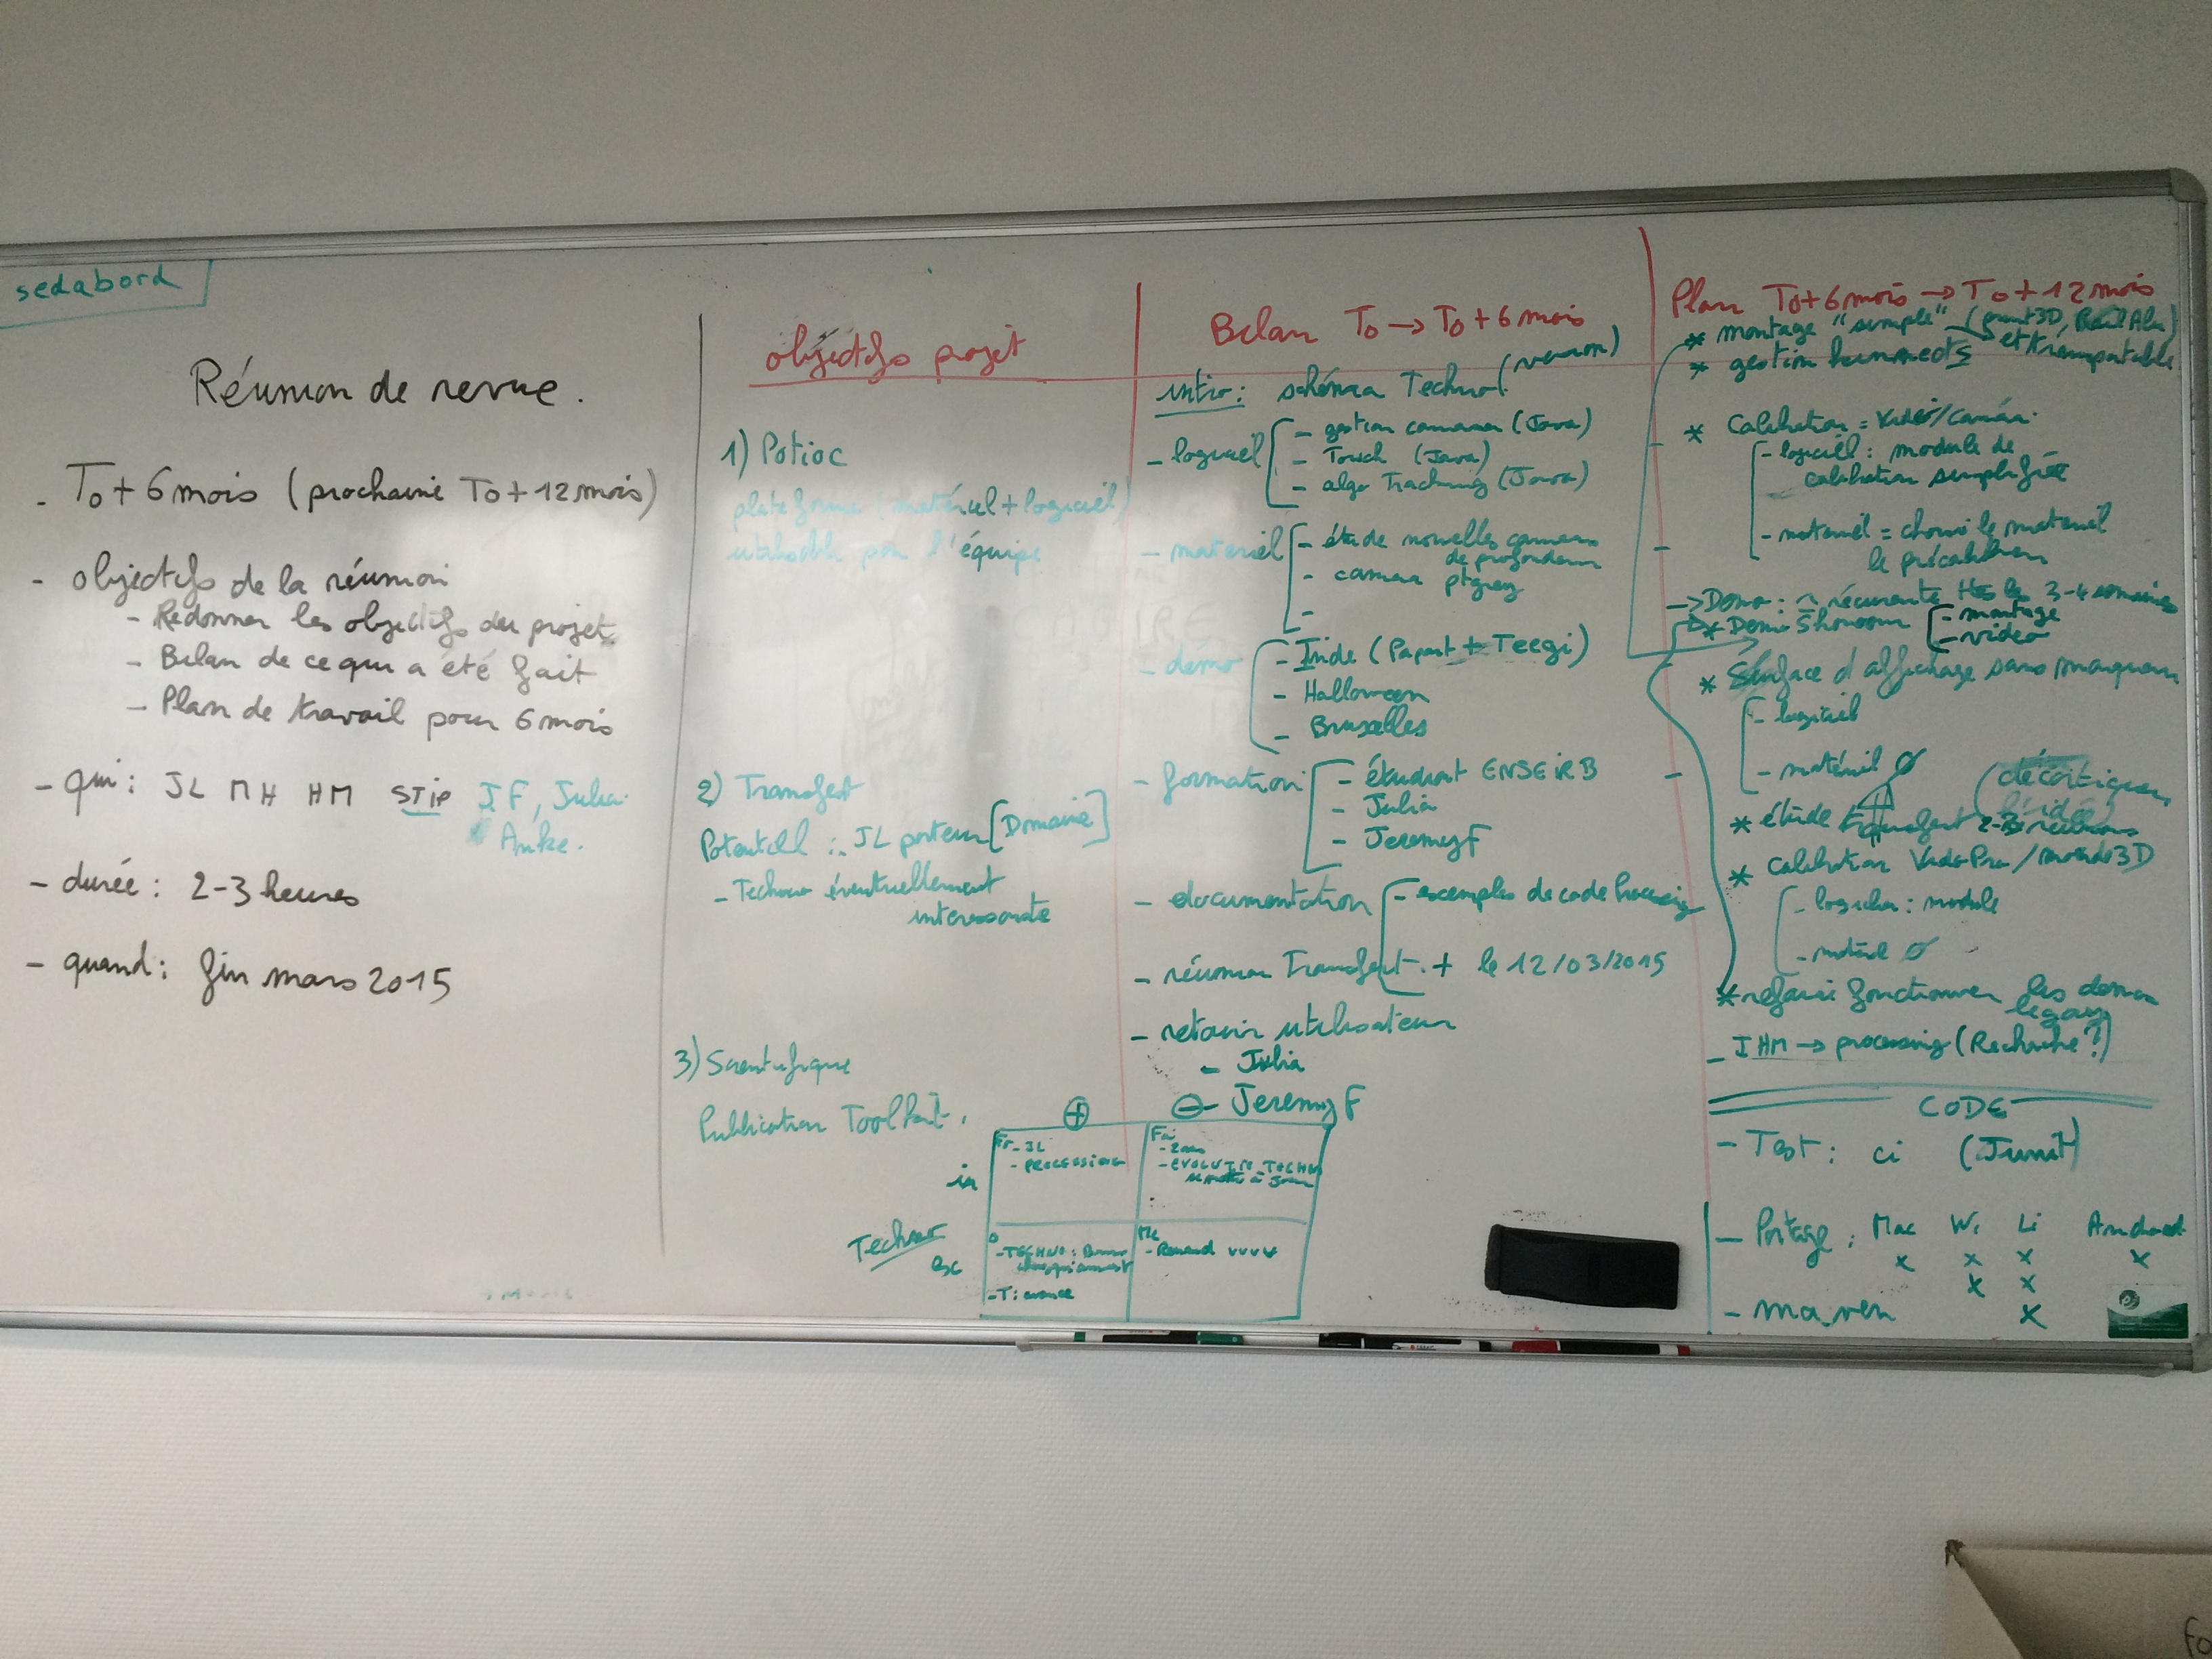 sedabord
Réunion de revue.
- T0 + 6 mois (prochaine T0 + 12 mois)
- objectifs de la réunion
- Redonner les objectifs du projet
- Bilan de ce qui a été fait
- Plan de travail pour 6 mois
- qui : JL MH HM STIP JF, Julia
Anke.
- durée : 2-3 heures
- quand : fin mars 2015
objectifs projet
1) Potioc
plateforme (matériel + logiciel)
utilisable par l'équipe
2) Transfert
Potentiel : JL porteur [Domaine]
- Techno éventuellement
interessante
3) Scientifique
Publication Toolkit.
Bilan T0 → T0 + 6 mois
intro : schéma Techno (version)
- logiciel
- gestion cameras (Java)
- Touch (Java)
- algo Tracking (Java)
- materiel
- étude nouvelles cameras
de profondeur
- camera ptgrey
-
- démo
- Inde (Papart + Teegi)
- Halloween
- Bruxelles
- formation
- étudiant ENSEIRB
- Julia
- Jeremy F
- documentation
- exemples de code Processing
- réunion Transfert. + le 12/03/2015
- retour utilisateur
- Julia
- Jeremy F
+ -
in
Techno
ex
Fo - JL
- PROCESSING
Fa
- EVOLUTION TECHNO
se mettre à jour
O
- TECHNO :
- T : avance
Me
- Renaud vvvv
Plan T0 + 6 mois → T0 + 12 mois
* montage "simple" (print3D, Rail Alu)
et transportable
* gestion kinnects
* Calibration = Vidéo/caméra
- logiciel : module de
calibration simplifiée
- materiel = choisir le materiel
le précalibrer
→ Demo : récurente ttes les 3-4 semaines
* Demo Showroom
- montage
- video
* Surface d'affichage sans marqueurs
- logiciel
- matériel ∅
* étude transfert 2-3 réunions
(décortiquer
l'idée)
* calibration VideoPro / monde 3D
- logiciel : module
- matériel ∅
* refaire fonctionner les demos
legacy
- IHM → processing (Recherche ?)
CODE
- Test : ci (Junit)
- Portage : Mac Wi Li Android
x x x x
x x
- maven x